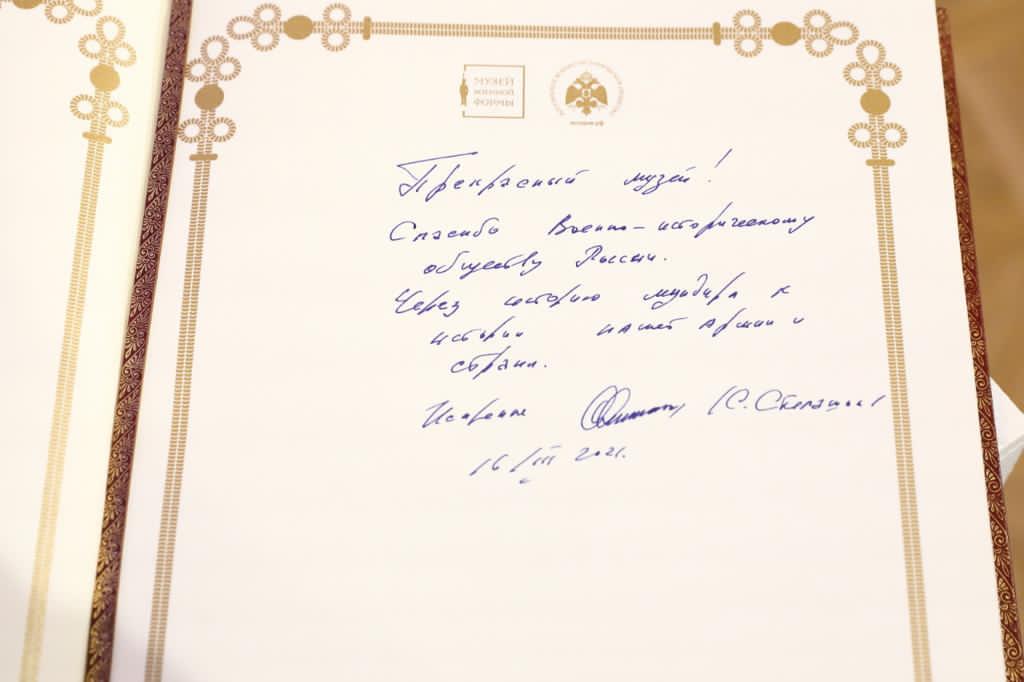 МУЗЕЙ
ВОЕННОЙ
ФОРМЫ
история.рф
Прекрасный музей!
Спасибо Военно-историческому
обществу России.
Через историю мундира к
истории нашей армии и
страны.
Искренне (С. Степашин)
16/III 2021.